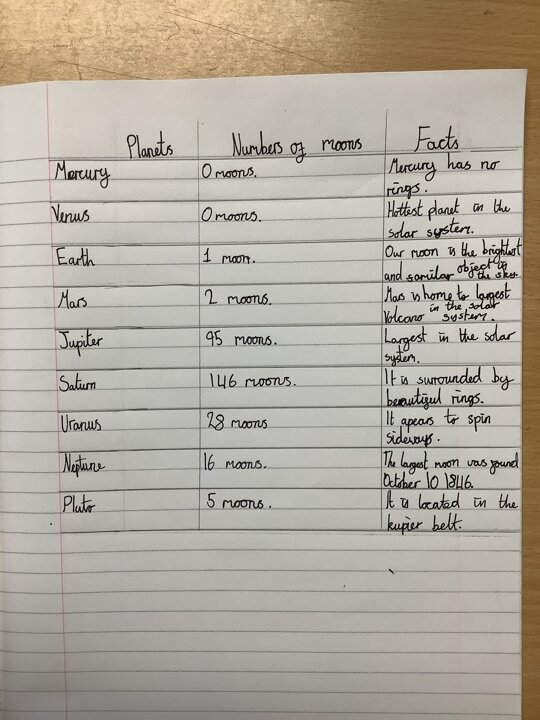 Planets Numbers of moons Facts
Mercury 0 moons. Mercury has no
rings.
Venus 0 moons. Hottest planet in the
solar system.
Earth 1 moon. Our moon is the brightest
and object in
the sky
Mars 2 moons. Mas is home to largest
in the solar
Volcano system.
Jupiter 95 moons. Largest in the solar
system.
Saturn 146 moons. It is surrounded by
beautiful rings.
Uranus 28 moons It apears to spin
sideways.
Neptune 16 moons. The largest moon was found
October 10 1846.
Pluto 5 moons. It is located in the
kupier belt.